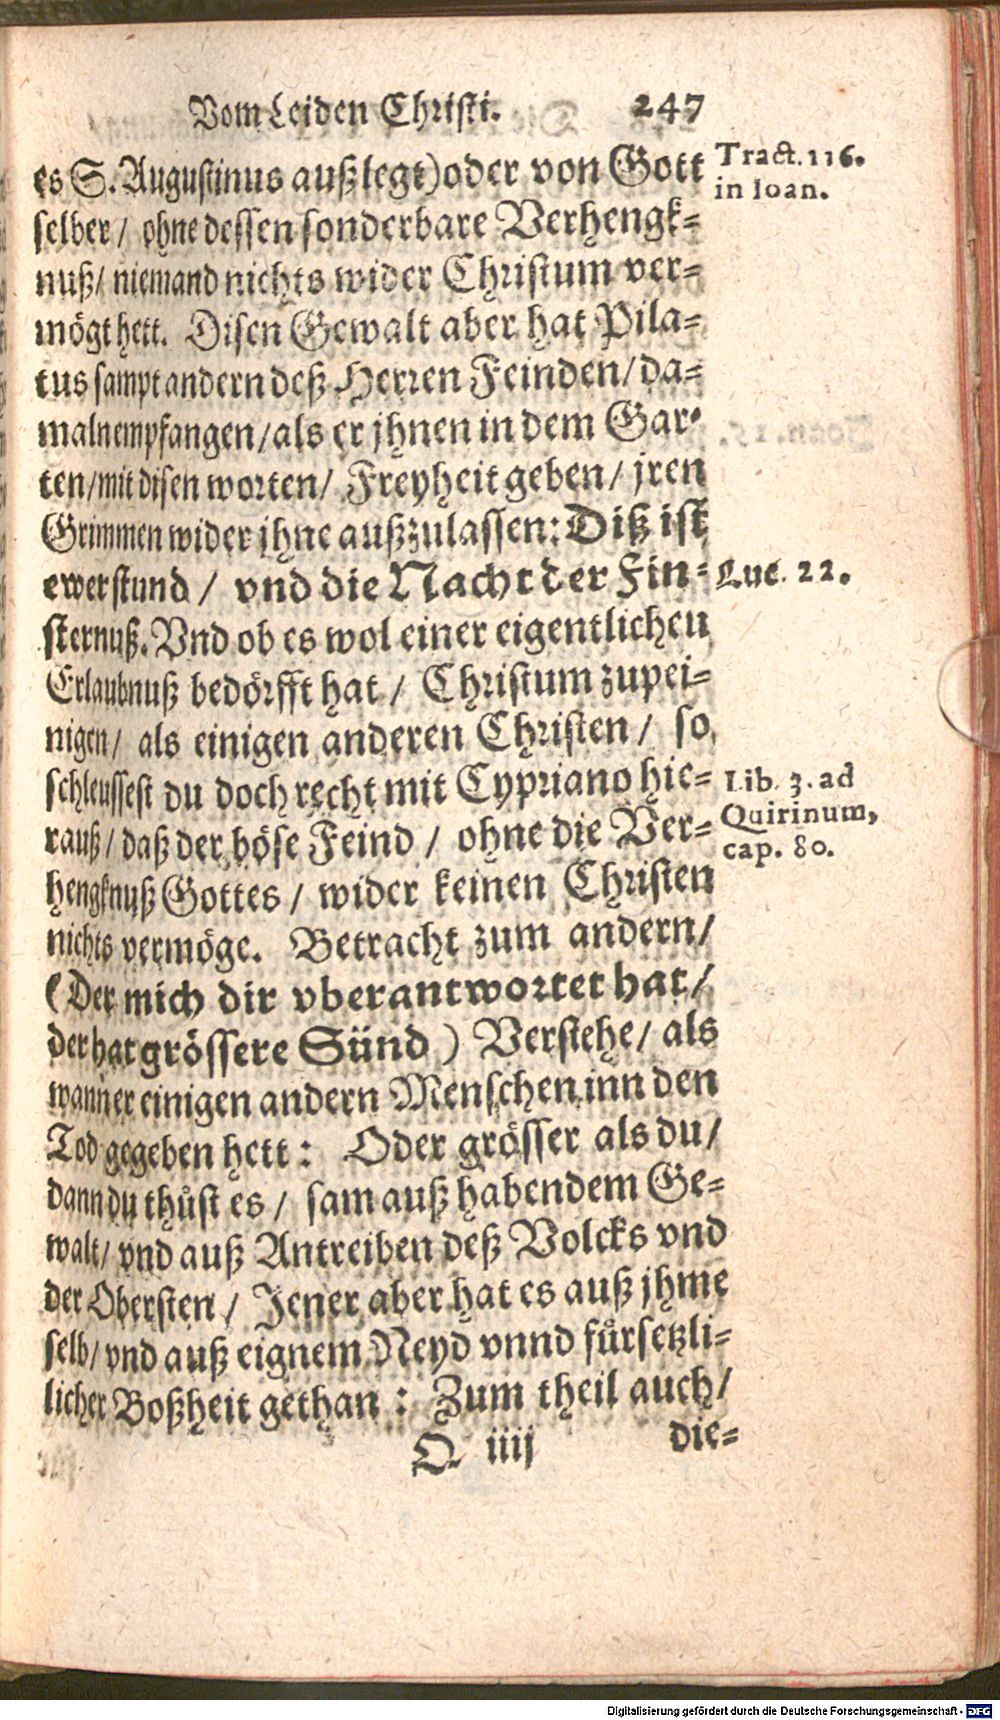 Vom Leiden Christi. 247
es S. Augustinus außlegt) oder von Gott
Tract. 116.
in Ioan.
selber / ohne dessen sonderbare Verhengk-
nuß / niemand nichts wider Christum ver-
mögt hett. Disen Gewalt aber hat Pila-
tus sampt andern deß Herren Feinden / da-
maln empfangen / als er jhnen in dem Gar-
ten / mit disen worten / Freyheit geben / jren
Grimmen wider jhne außzulassen: Diß ist
ewer stund / vnd die Nacht der Fin-
Luc. 22.
sternuß. Vnd ob es wol einer eigentlichen
Erlaubnuß bedörfft hat / Christum zupei-
nigen / als einigen anderen Christen / so
schleussest du doch recht mit Cypriano hie-
Lib. 3. ad
Quirinum,
cap. 80.
rauß / daß der böse Feind / ohne die Ver-
hengknuß Gottes / wider keinen Christen
nichts vermöge. Betracht zum andern /
(Der mich dir vberantwortet hat /
der hat grössere Sünd) Verstehe / als
wann er einigen andern Menschen inn den
Tod gegeben hett: Oder grösser als du /
dann du thůst es / sam auß habendem Ge-
walt / vnd auß Antreiben deß Volcks vnd
der Obersten / Jener aber hat es auß jhme
selb / vnd auß eignem Neyd vnnd fürsetzli-
licher Boßheit gethan: Zum theil auch /
Q iiij die-
Digitalisierung gefördert durch die Deutsche Forschungsgemeinschaft - DFG